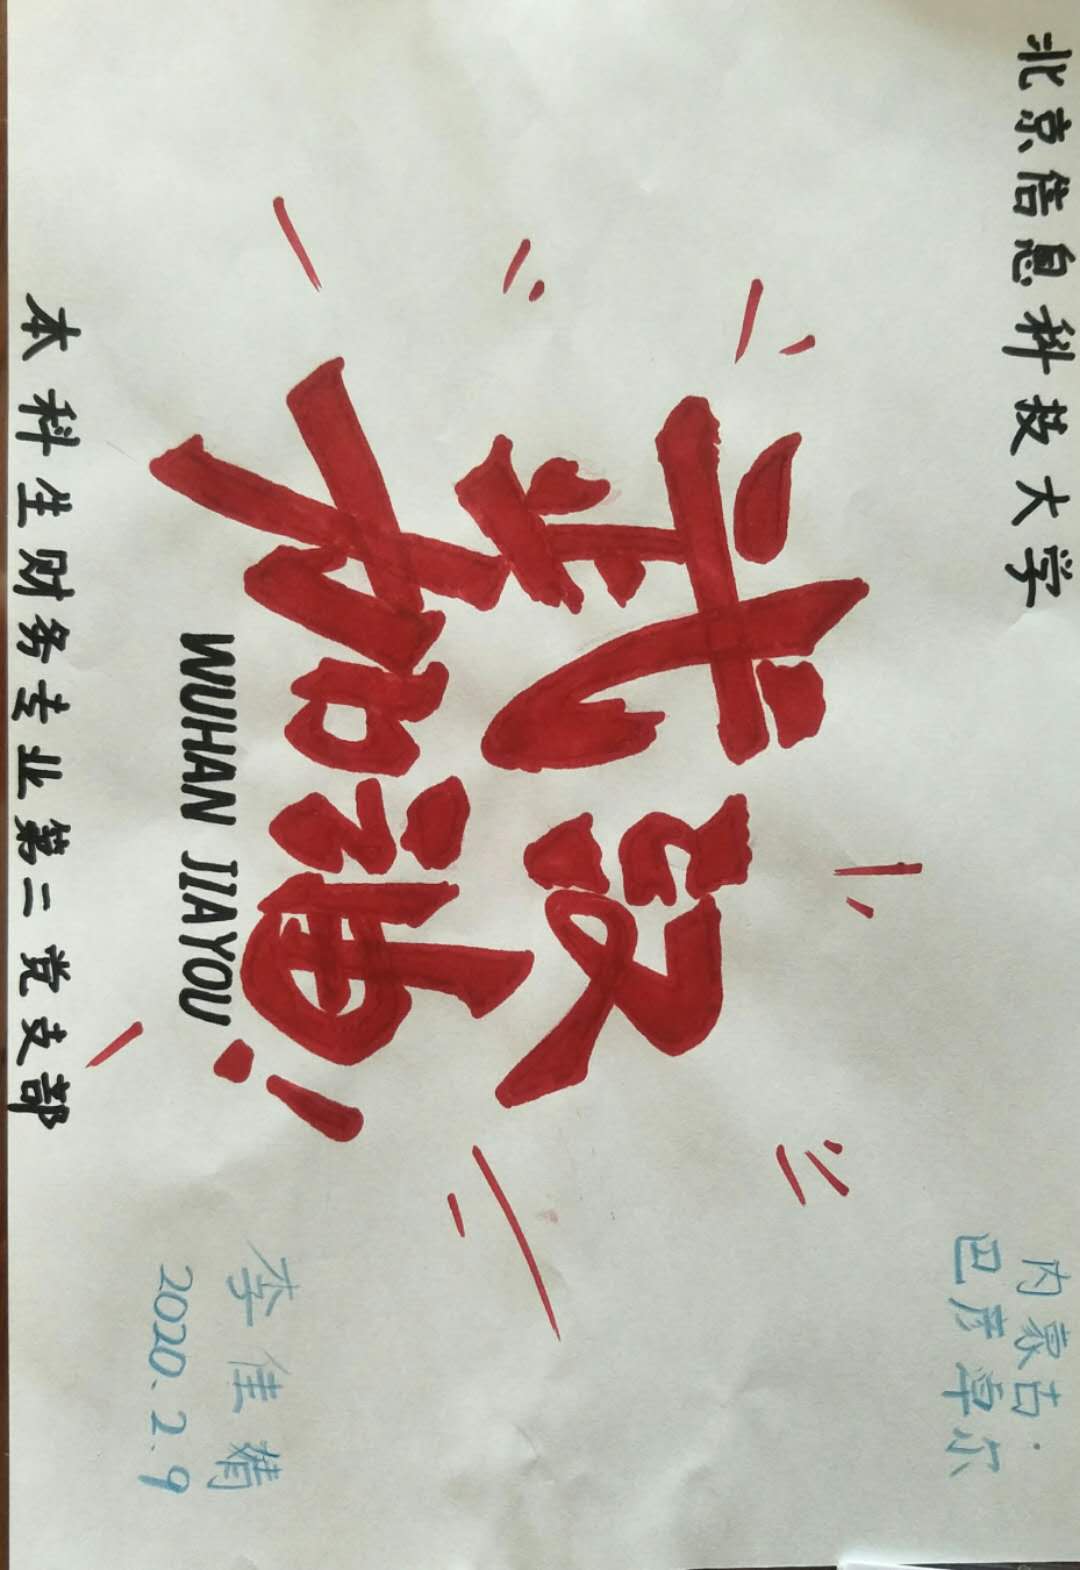 北京信息科技大学
内蒙古·
巴彦卓尔
武汉
加油!
WUHAN JIAYOU
李佳婧
2020.2.9
本科生财务专业第二党支部